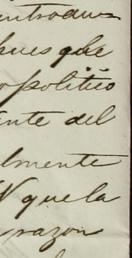 introduz
pues que
o politico
ente del
lmente
N que la
razon